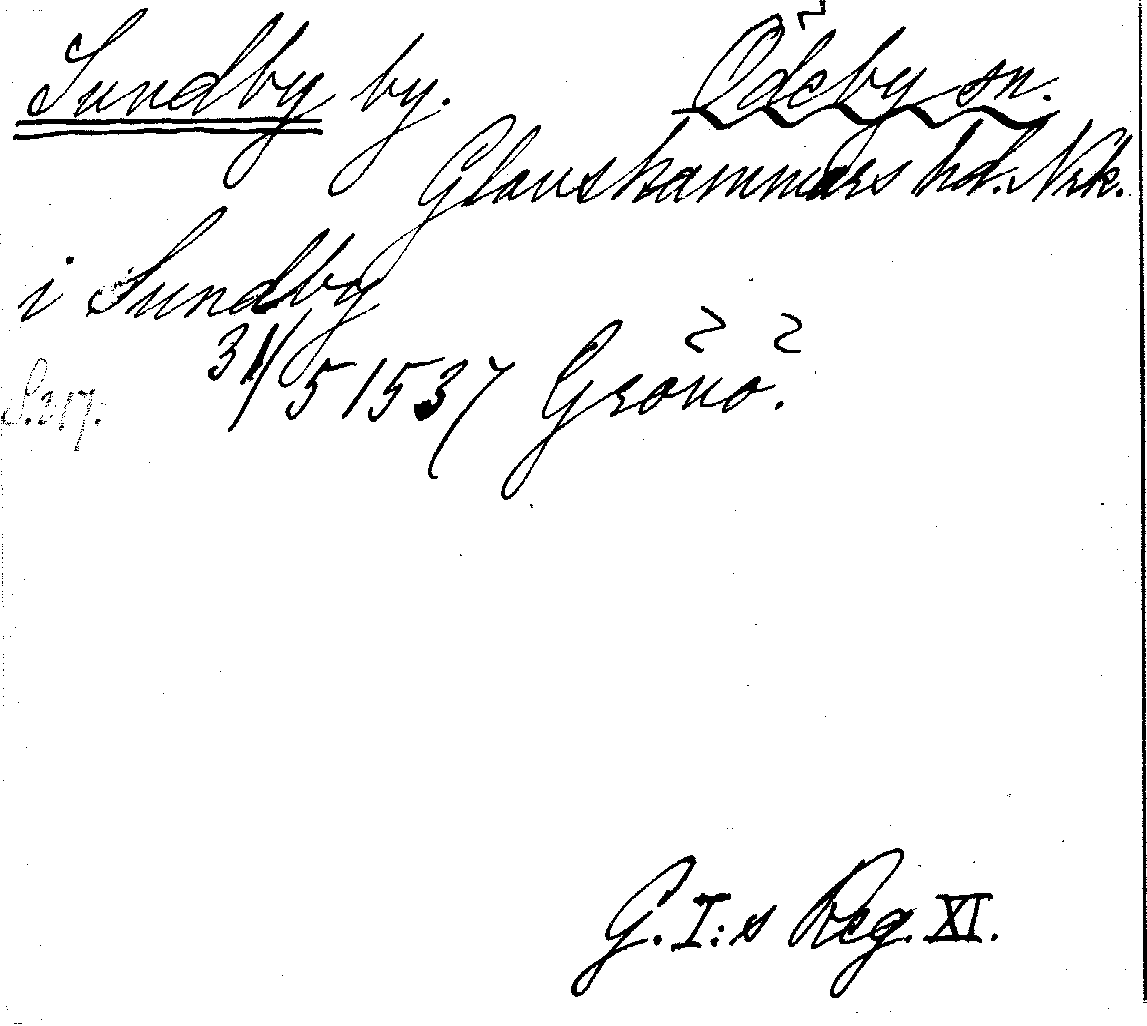 Sundby by. Ödeby sn.
Glanshammars hd. Nrk.
i Sundby
31/5 1537 Grönö.
S. 217.
G. I:s Reg. XI.